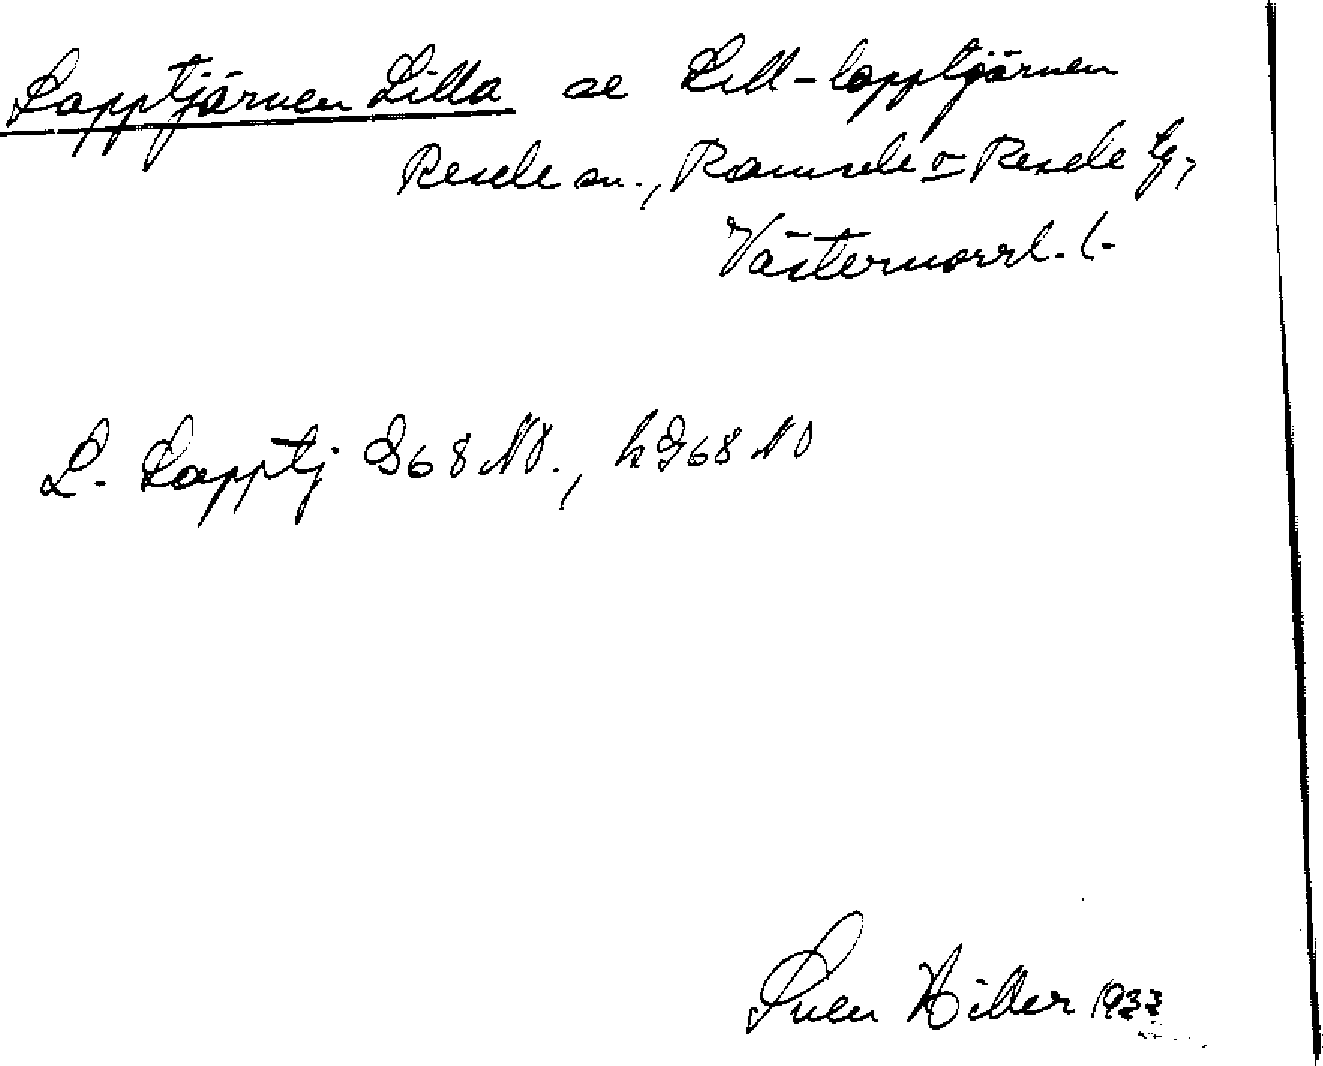 Lapptjärnen Lilla se Lill-lapptjärnen
Resele sn., Ramsele o Resele tg,
Västernorrl. l.
L. Lapptj S68 NV., k G68 NO
Sven Hiller 1933